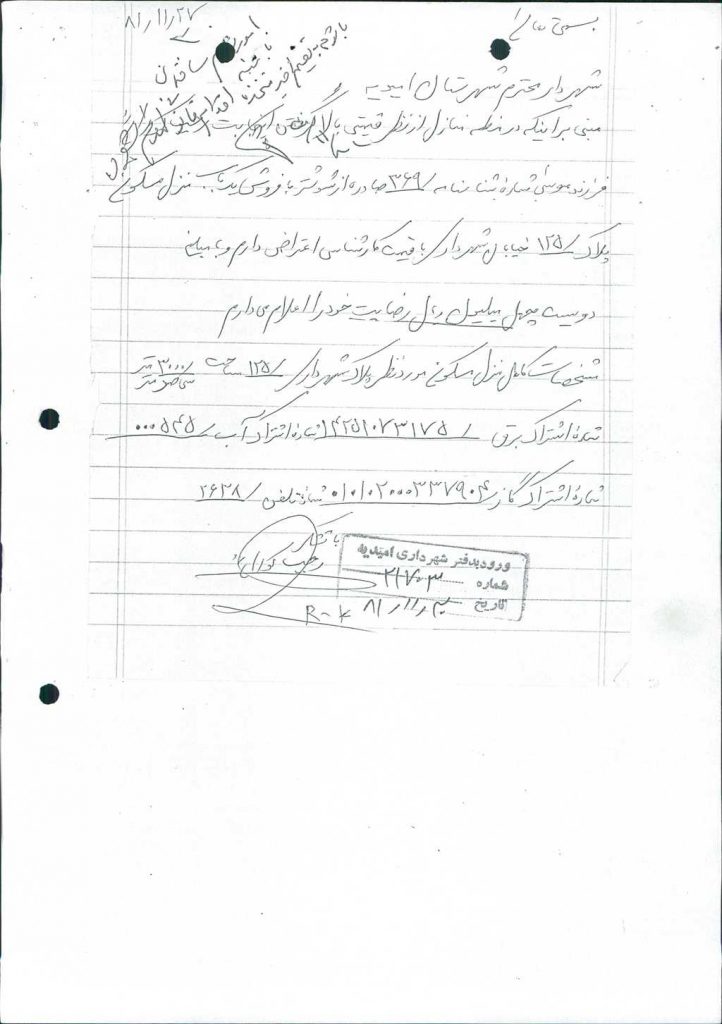 بسمه تعالی
۸۱/۱۱/۲۷
شهردار محترم شهرستان امیدیه
مبنی بر اینکه در منازل از نظر قیمتی بالا
فرزند موسی شماره شناسنامه /۳۶۹ صادره از شوشتر با فروش یکباب منزل مسکونی
پلاک /۱۲۵ خیابان شهرداری با قیمت کارشناس اعتراض دارم و با مبلغ
دویست چهل میلیون ریال رضایت خود را اعلام می دارم
مشخصات کامل منزل مسکونی مورد نظر پلاک شهرداری /۱۲۵ مساحت /۳۰۰۰ متر
سی صد متر
شماره اشتراک برق /۴۲۵۱۰۷۳۱۷۵ شماره اشتراک آب /۵۴۵۰۰۰
شماره اشتراک گاز /۰۱۰۱۰۲۰۰۰۳۳۷۹۰۴ شماره تلفن /۲۶۳۸
با تشکر
رجب
ورود بدفتر شهرداری امیدیه
شماره ۲۱۷۰۳
تاریخ ۸۱/۱۱/۳۰
R-K